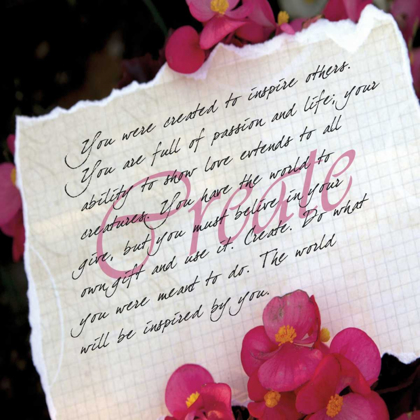 You were created to inspire others.
You are full of passion and life; your
ability to show love extends to all
creatures. You have the world to
give, but you must belive in your
own gift and use it. Create. Do what
you were meant to do. The world
will be inspired by you.
Create